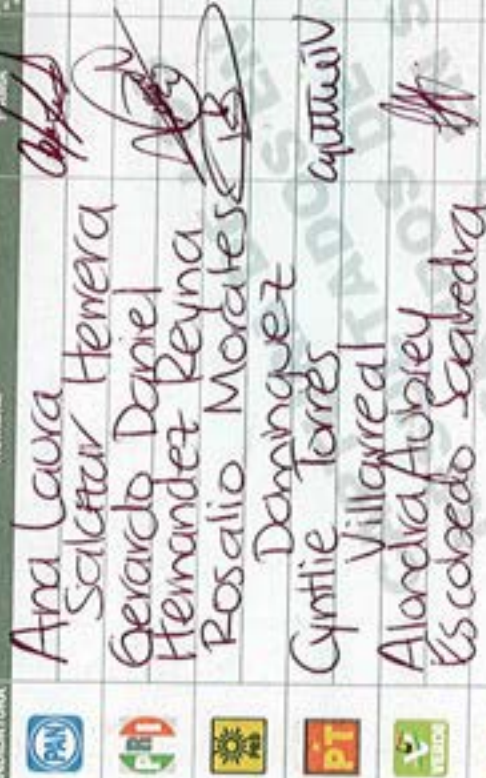 PAN
Ana Laura
Salazar Herrera
PRI
Gerardo Daniel
Hernandez Reyna
PRD
Rosalio Morales
Dominguez
PT
Cynthie Torres
Villarreal
CynthieTV
VERDE
Alondra Aubrey
Escobedo Saavedra